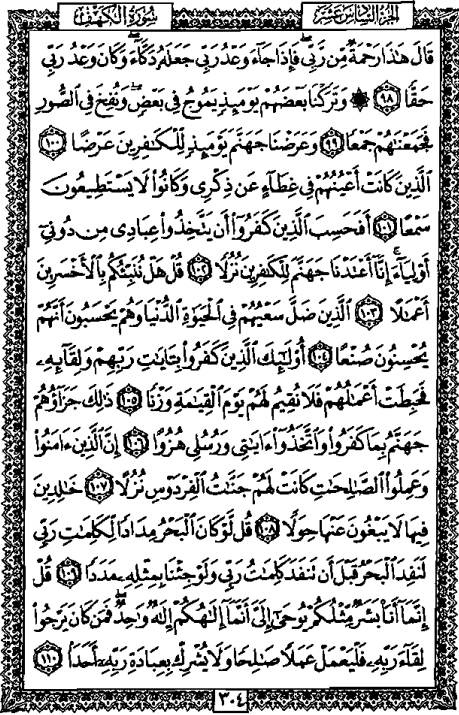 الجزء السادس عشر سورة الكهف
قَالَ هَٰذَا رَحْمَةٌ مِّن رَّبِّي ۖ فَإِذَا جَاءَ وَعْدُ رَبِّي جَعَلَهُ دَكَّاءَ ۖ وَكَانَ وَعْدُ رَبِّي
حَقًّا ٩٨ ۞ وَتَرَكْنَا بَعْضَهُمْ يَوْمَئِذٍ يَمُوجُ فِي بَعْضٍ ۖ وَنُفِخَ فِي الصُّورِ
فَجَمَعْنَاهُمْ جَمْعًا ٩٩ وَعَرَضْنَا جَهَنَّمَ يَوْمَئِذٍ لِّلْكَافِرِينَ عَرْضًا ١٠٠
الَّذِينَ كَانَتْ أَعْيُنُهُمْ فِي غِطَاءٍ عَن ذِكْرِي وَكَانُوا لَا يَسْتَطِيعُونَ
سَمْعًا ١٠١ أَفَحَسِبَ الَّذِينَ كَفَرُوا أَن يَتَّخِذُوا عِبَادِي مِن دُونِي
أَوْلِيَاءَ ۚ إِنَّا أَعْتَدْنَا جَهَنَّمَ لِلْكَافِرِينَ نُزُلًا ١٠٢ قُلْ هَلْ نُنَبِّئُكُم بِالْأَخْسَرِينَ
أَعْمَالًا ١٠٣ الَّذِينَ ضَلَّ سَعْيُهُمْ فِي الْحَيَاةِ الدُّنْيَا وَهُمْ يَحْسَبُونَ أَنَّهُمْ
يُحْسِنُونَ صُنْعًا ١٠٤ أُولَٰئِكَ الَّذِينَ كَفَرُوا بِآيَاتِ رَبِّهِمْ وَلِقَائِهِ
فَحَبِطَتْ أَعْمَالُهُمْ فَلَا نُقِيمُ لَهُمْ يَوْمَ الْقِيَامَةِ وَزْنًا ١٠٥ ذَٰلِكَ جَزَاؤُهُمْ
جَهَنَّمُ بِمَا كَفَرُوا وَاتَّخَذُوا آيَاتِي وَرُسُلِي هُزُوًا ١٠٦ إِنَّ الَّذِينَ آمَنُوا
وَعَمِلُوا الصَّالِحَاتِ كَانَتْ لَهُمْ جَنَّاتُ الْفِرْدَوْسِ نُزُلًا ١٠٧ خَالِدِينَ
فِيهَا لَا يَبْغُونَ عَنْهَا حِوَلًا ١٠٨ قُل لَّوْ كَانَ الْبَحْرُ مِدَادًا لِّكَلِمَاتِ رَبِّي
لَنَفِدَ الْبَحْرُ قَبْلَ أَن تَنفَدَ كَلِمَاتُ رَبِّي وَلَوْ جِئْنَا بِمِثْلِهِ مَدَدًا ١٠٩ قُلْ
إِنَّمَا أَنَا بَشَرٌ مِّثْلُكُمْ يُوحَىٰ إِلَيَّ أَنَّمَا إِلَٰهُكُمْ إِلَٰهٌ وَاحِدٌ ۖ فَمَن كَانَ يَرْجُوا
لِقَاءَ رَبِّهِ فَلْيَعْمَلْ عَمَلًا صَالِحًا وَلَا يُشْرِكْ بِعِبَادَةِ رَبِّهِ أَحَدًا ١١٠
٣٠٤